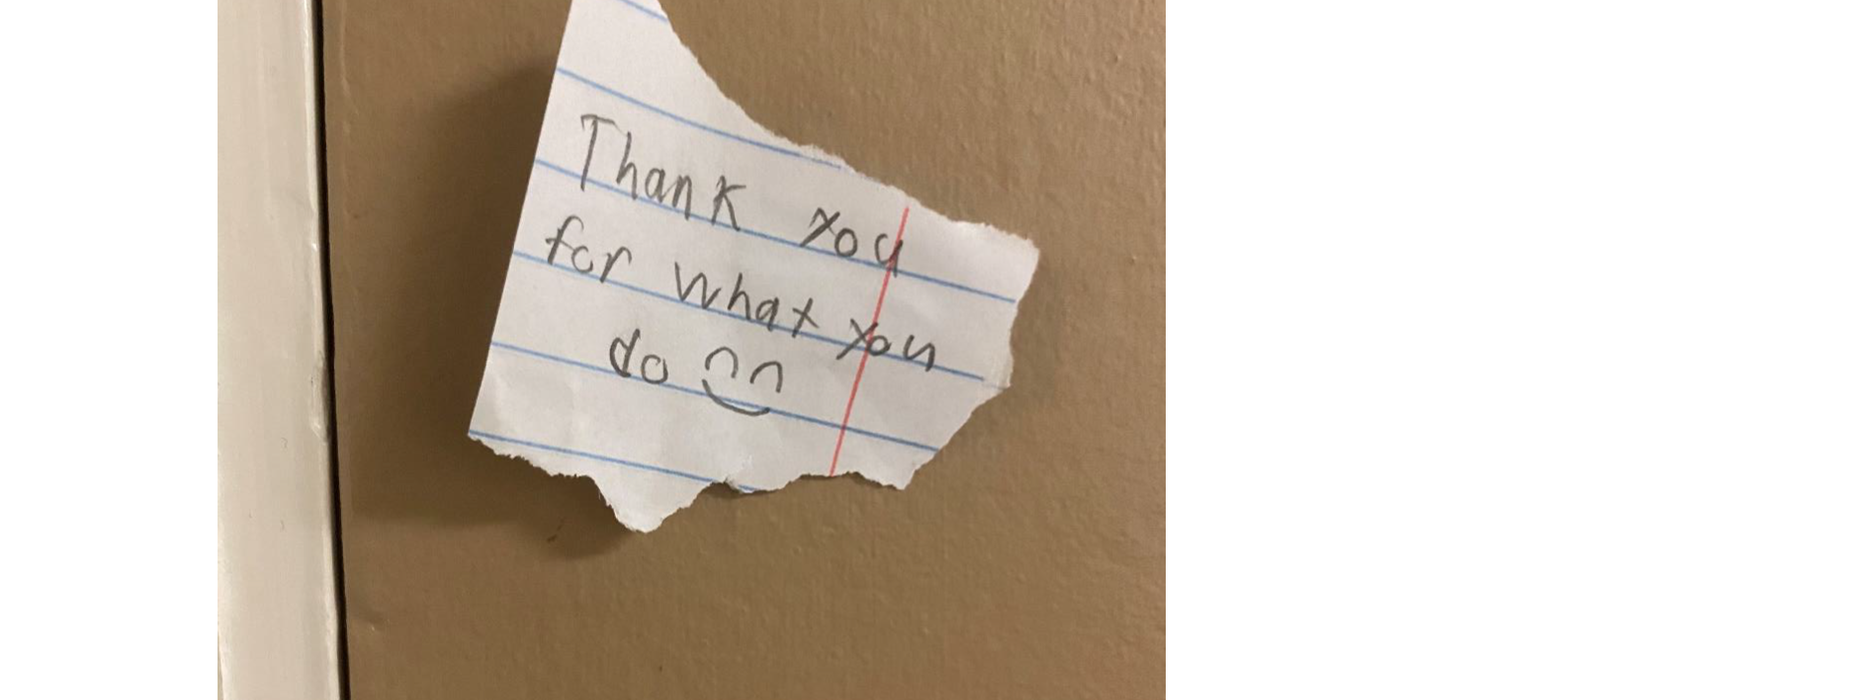 Thank you
for what you
do